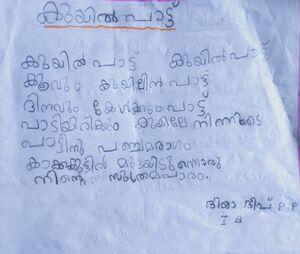 കുയിൽ പാട്ട്
കുയിൽ പാട്ട് കുയിൽ പാട്ട്
കൂവും കുയിലിൻ പാട്ട്
ദിനവും കേൾക്കും പാട്ട്
പാടിയിരിക്കും കുയിലേ നിന്നുടെ
പാട്ടിനു പഞ്ചമരാഗം
കാക്കക്കൂട്ടിൽ മുട്ടയിടുന്നൊരു
നിന്റെ സൂത്രമപാരം.
ദിയാ ദീപ് P P
I B